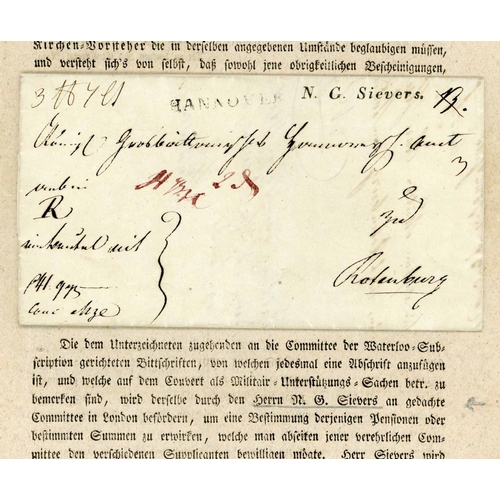 Kirchen-Vorsteher die in derselben angegebenen Umstände beglaubigen müssen,
und versteht sich's von selbst, daß sowohl jene obrigkeitlichen Bescheinigungen,
HANNOVER N. G. Sievers.
Königl Großbrittannisch Hannoversch. Amt
R
zu
Rotenburg
Die dem Unterzeichneten zugehenden an die Committee der Waterloo-Sub-
scription gerichteten Bittschriften, von welchen jedesmal eine Abschrift anzufügen
ist, und welche auf dem Couvert als Militair-Unterstützungs-Sachen betr. zu
bemerken sind, wird derselbe durch den Herrn N. G. Sievers an gedachte
Committee in London befördern, um eine Bestimmung derjenigen Pensionen oder
bestimmten Summen zu erwirken, welche man abseiten jener verehrlichen Com-
mittee den verschiedenen Supplicanten bewilligen mögte. Herr Sievers wird